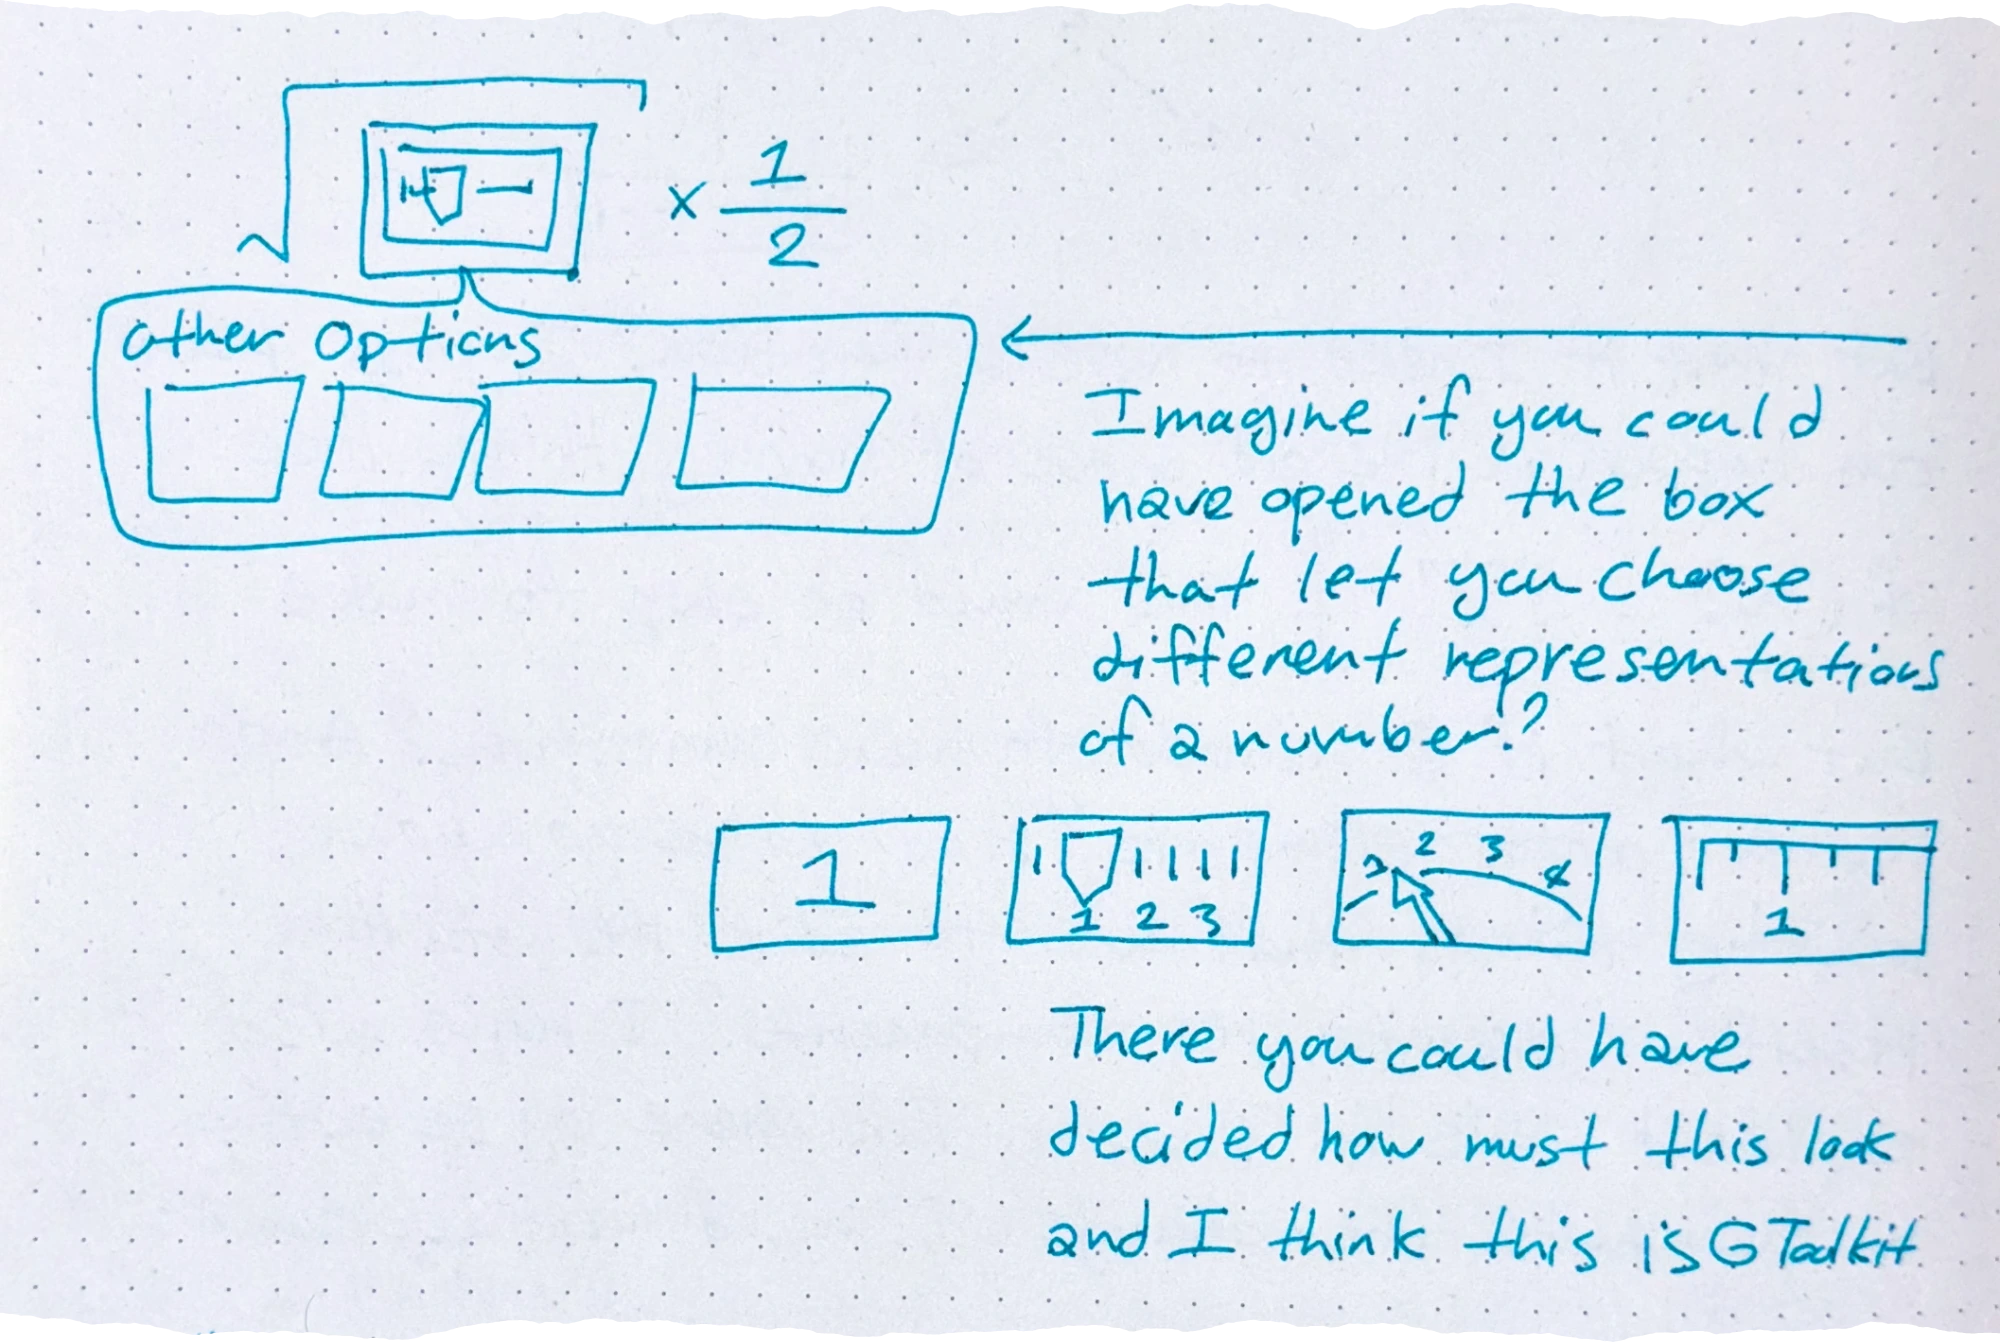 √ × 1/2
Other Options
Imagine if you could
have opened the box
that let you choose
different representations
of a number?
1
1 2 3
2 3 4
1
There you could have
decided how must this look
and I think this is GToolkit